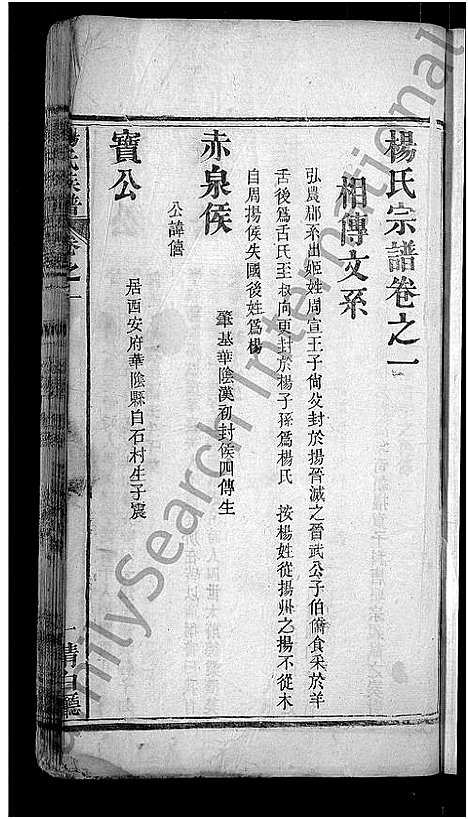 楊氏宗譜卷之一
相傳文系
弘農郡系出姬姓周宣王子尙父封於揚晉滅之晉武公子伯僑食采於羊
舌後爲舌氏至叔向更封於楊子孫爲楊氏 按楊姓從揚州之揚不從木
自周揚侯失國後姓爲楊
赤泉侯 肇基華陰漢初封侯四傳生
公諱僖
寶公 居西安府華陰縣白石村生子震
楊氏族譜 卷之一
一 清白廳
FamilySearch International